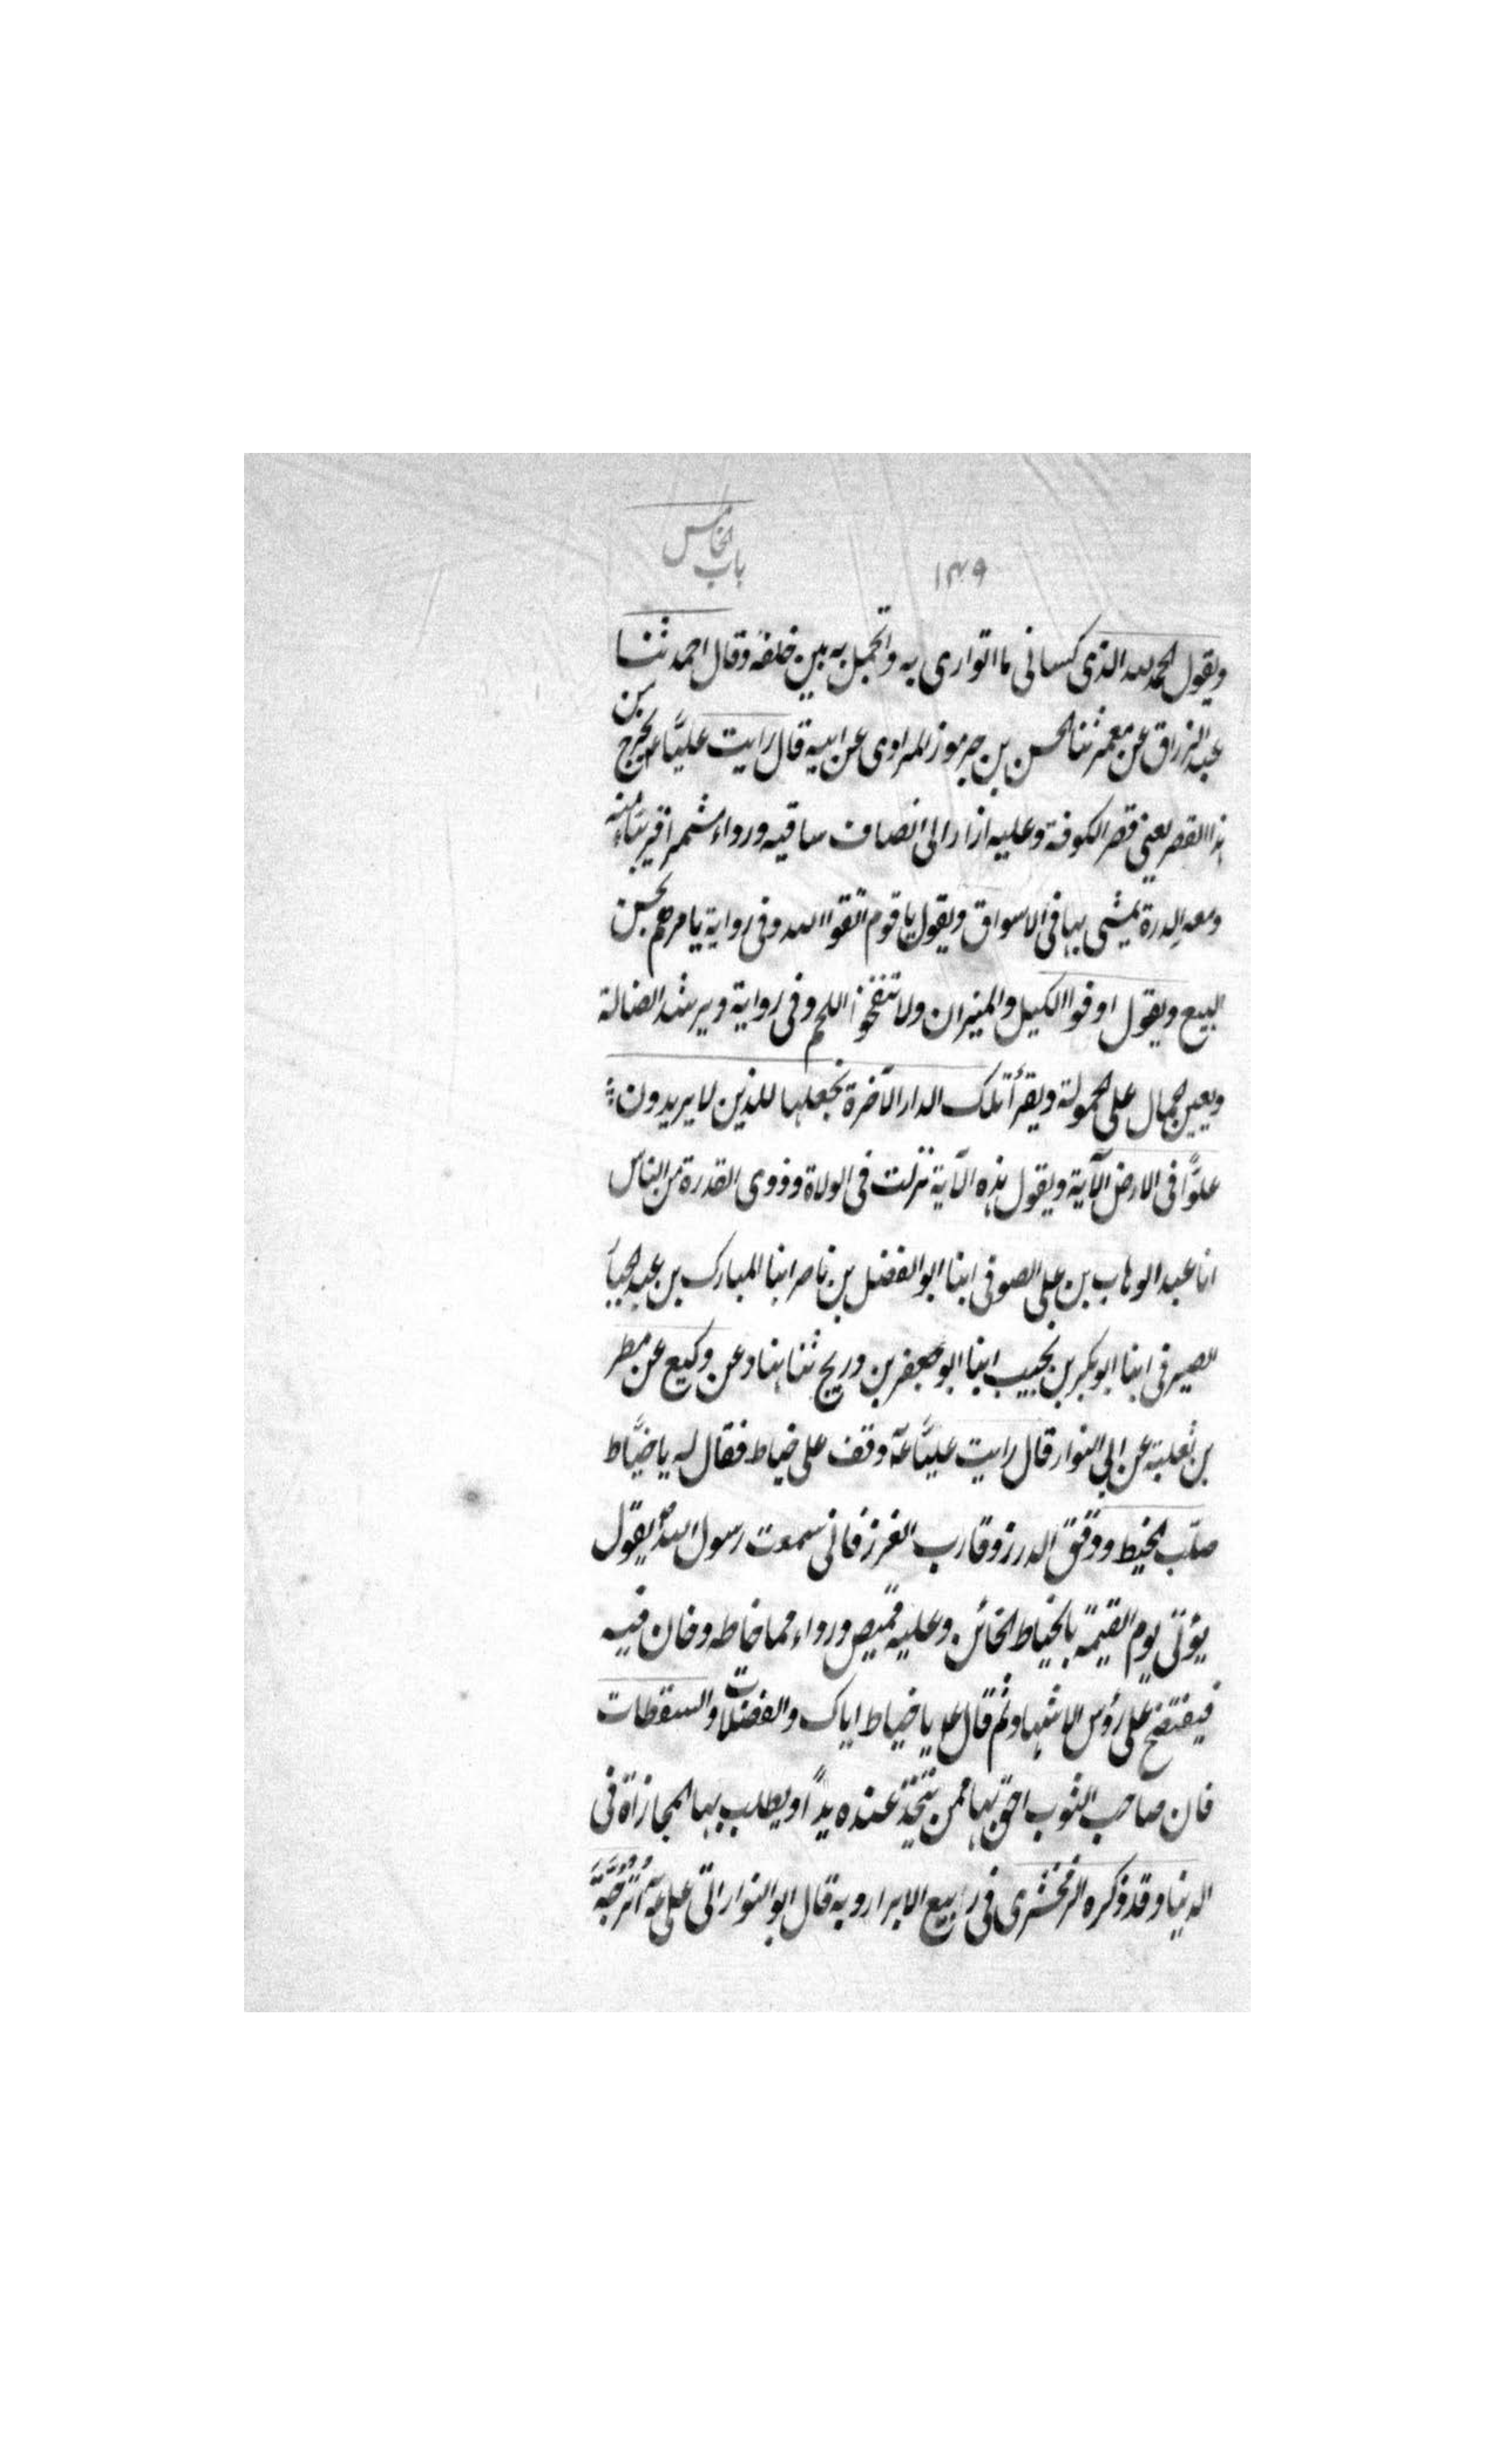 باب الخامس
۱۴۹
ويقول الحمد لله الذى كسانى ما اتوارى به واتجمل به بين خلقه وقال احمد ثنا
عبد الرزاق عن معمر ثنا الحسن بن جرموز المراوى عن ابيه قال رايت عليّا ع يخرج من
هذا القصر يعنى قصر الكوفة وعليه ازار الى انصاف ساقيه ورداء مشمر اقريبًا منه
ومعه الدرة يمشى بها فى الاسواق ويقول يا قوم اتقوا الله وفى رواية يامرهم بحسن
البيع ويقول اوفوا الكيل والميزان ولا تنفخوا اللحم وفى رواية ويرشد الضالة
ويعين الحمال على الحمولة ويقرأ تلك الدار الآخرة نجعلها للذين لا يريدون
علوًّا فى الارض الآية ويقول هذه الآية نزلت فى الولاة وذوى القدرة من الناس
انا عبد الوهاب بن على الصوفى ابنا ابو الفضل بن ناصر ابنا المبارك بن عبد الجبار
الصيرفى ابنا ابو بكر بن نجيب ابنا ابو جعفر بن دريج ثنا هناد عن وكيع عن مطر
بن ثعلبة عن ابى النوار قال رايت عليّا عم وقف على خياط فقال له يا خيّاط
صلّب الخيط ودقق الدرز وقارب الغرز فانى سمعت رسول الله ص يقول
يؤتى يوم القيمة بالخياط الخائن وعليه قميص ورداء مما خاطه وخان فيه
فيفتضح على رؤس الاشهاد ثم قال على يا خياط اياك والفضلات والسقطات
فان صاحب الثوب احق بها ممن يتخذ عنده يدًا ويطلب بها المجازاة فى
الدنيا وقد ذكره الزمخشرى فى ربيع الابرار وبه قال ابو النوار اتى على عم اُتْرُجَّة